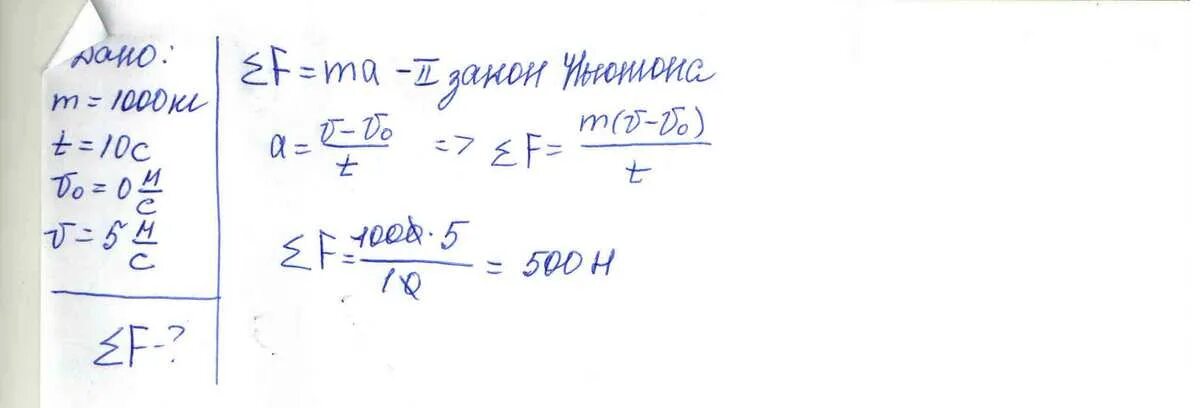 Дано:
m = 1000 кг
t = 10 с
v₀ = 0 м/с
v = 5 м/с
ΣF - ?
ΣF = ma - II закон Ньютона
a = (v - v₀)/t => ΣF = m(v - v₀)/t
ΣF = 1000 · 5/10 = 500 Н